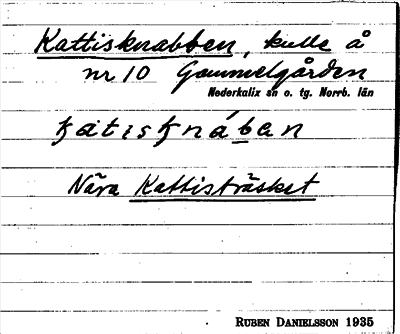 Kattisknabben, kulle å
nr 10 Gammelgården
Nederkalix sn o. tg. Norrb. län
katisknában
Nära Kattisträsket
RUBEN DANIELSSON 1935